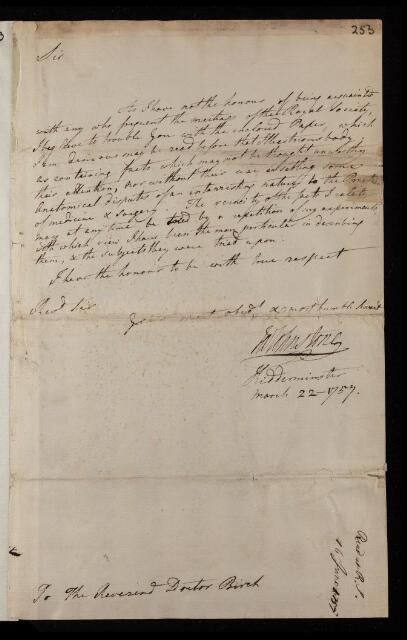 253
Sir
As I have not the honour of being acquainted
with any who frequent the meetings of the Royal Society,
I beg leave to trouble You with the enclosed Paper, which
I am desirous may be read before that Illustrious body
as containing facts which may not be thought unworthy
their attention, nor without their use in settling some
Anatomical disputes of an interesting nature to the Practice
of medicine & surgery. The veracity of the facts I relate
may at any time be tried by a repetition of my experiments
with which view I have been the more particular in describing
them, & the subjects they were tried upon.
I have the honour to be with true respect
Revd Sir
Your most obedt & most humble Servant
Ja Johnstone
Kidderminster
March 22 - 1757.
Read at R.S.
16
To The Reverend Doctor Birch